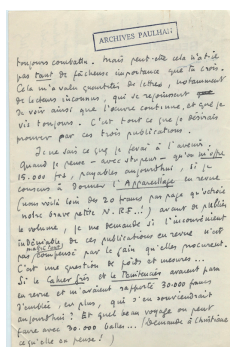 ARCHIVES PAULHAN
toujours combattu. Mais peut-être cela n'a-t-il
pas tant de fâcheuse importance que tu crois.
Cela m'a valu quantités de lettres, notamment
de lecteurs inconnus, qui se rejouissent
de voir ainsi que l'œuvre continue, et que je
vis toujours. C'est tout ce que je désirais
prouver par ces trois publications.
Je ne sais ce que je ferai à l'avenir.
Quand je pense – avec stupeur – qu'on m'offre
15.000 frs, payables aujourd'hui, si je
consens à donner l'Appareillage en revue
(nous voilà loin des 20 francs par page qu'octroie
notre brave petite N.R.F. !) avant de publier
le volume, je me demande si l'inconvénient
indéniable de ces publications en revue n'est
pas compensé par le gain qu'elles procurent.
C'est une question de poids et mesures...
Si le Cahier gris et le Pénitencier avaient paru
en revue et m'avaient rapporté 30.000 francs
d'emblée, en plus, qui s'en souviendrait
aujourd'hui ? Et quel beau voyage on peut
faire avec 30.000 balles... (Demande à Christiane
ce qu'elle en pense !)